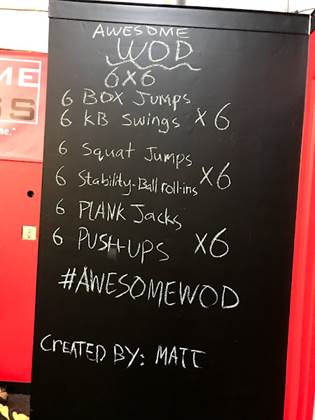 AWESOME
WOD
6X6
6 BOX Jumps
6 KB Swings X 6
6 Squat Jumps
6 Stability-Ball roll-ins X6
6 PLANK Jacks
6 PUSH-UPS X6
#AWESOMEWOD
CREATED BY: MATT
ME
SS
me."